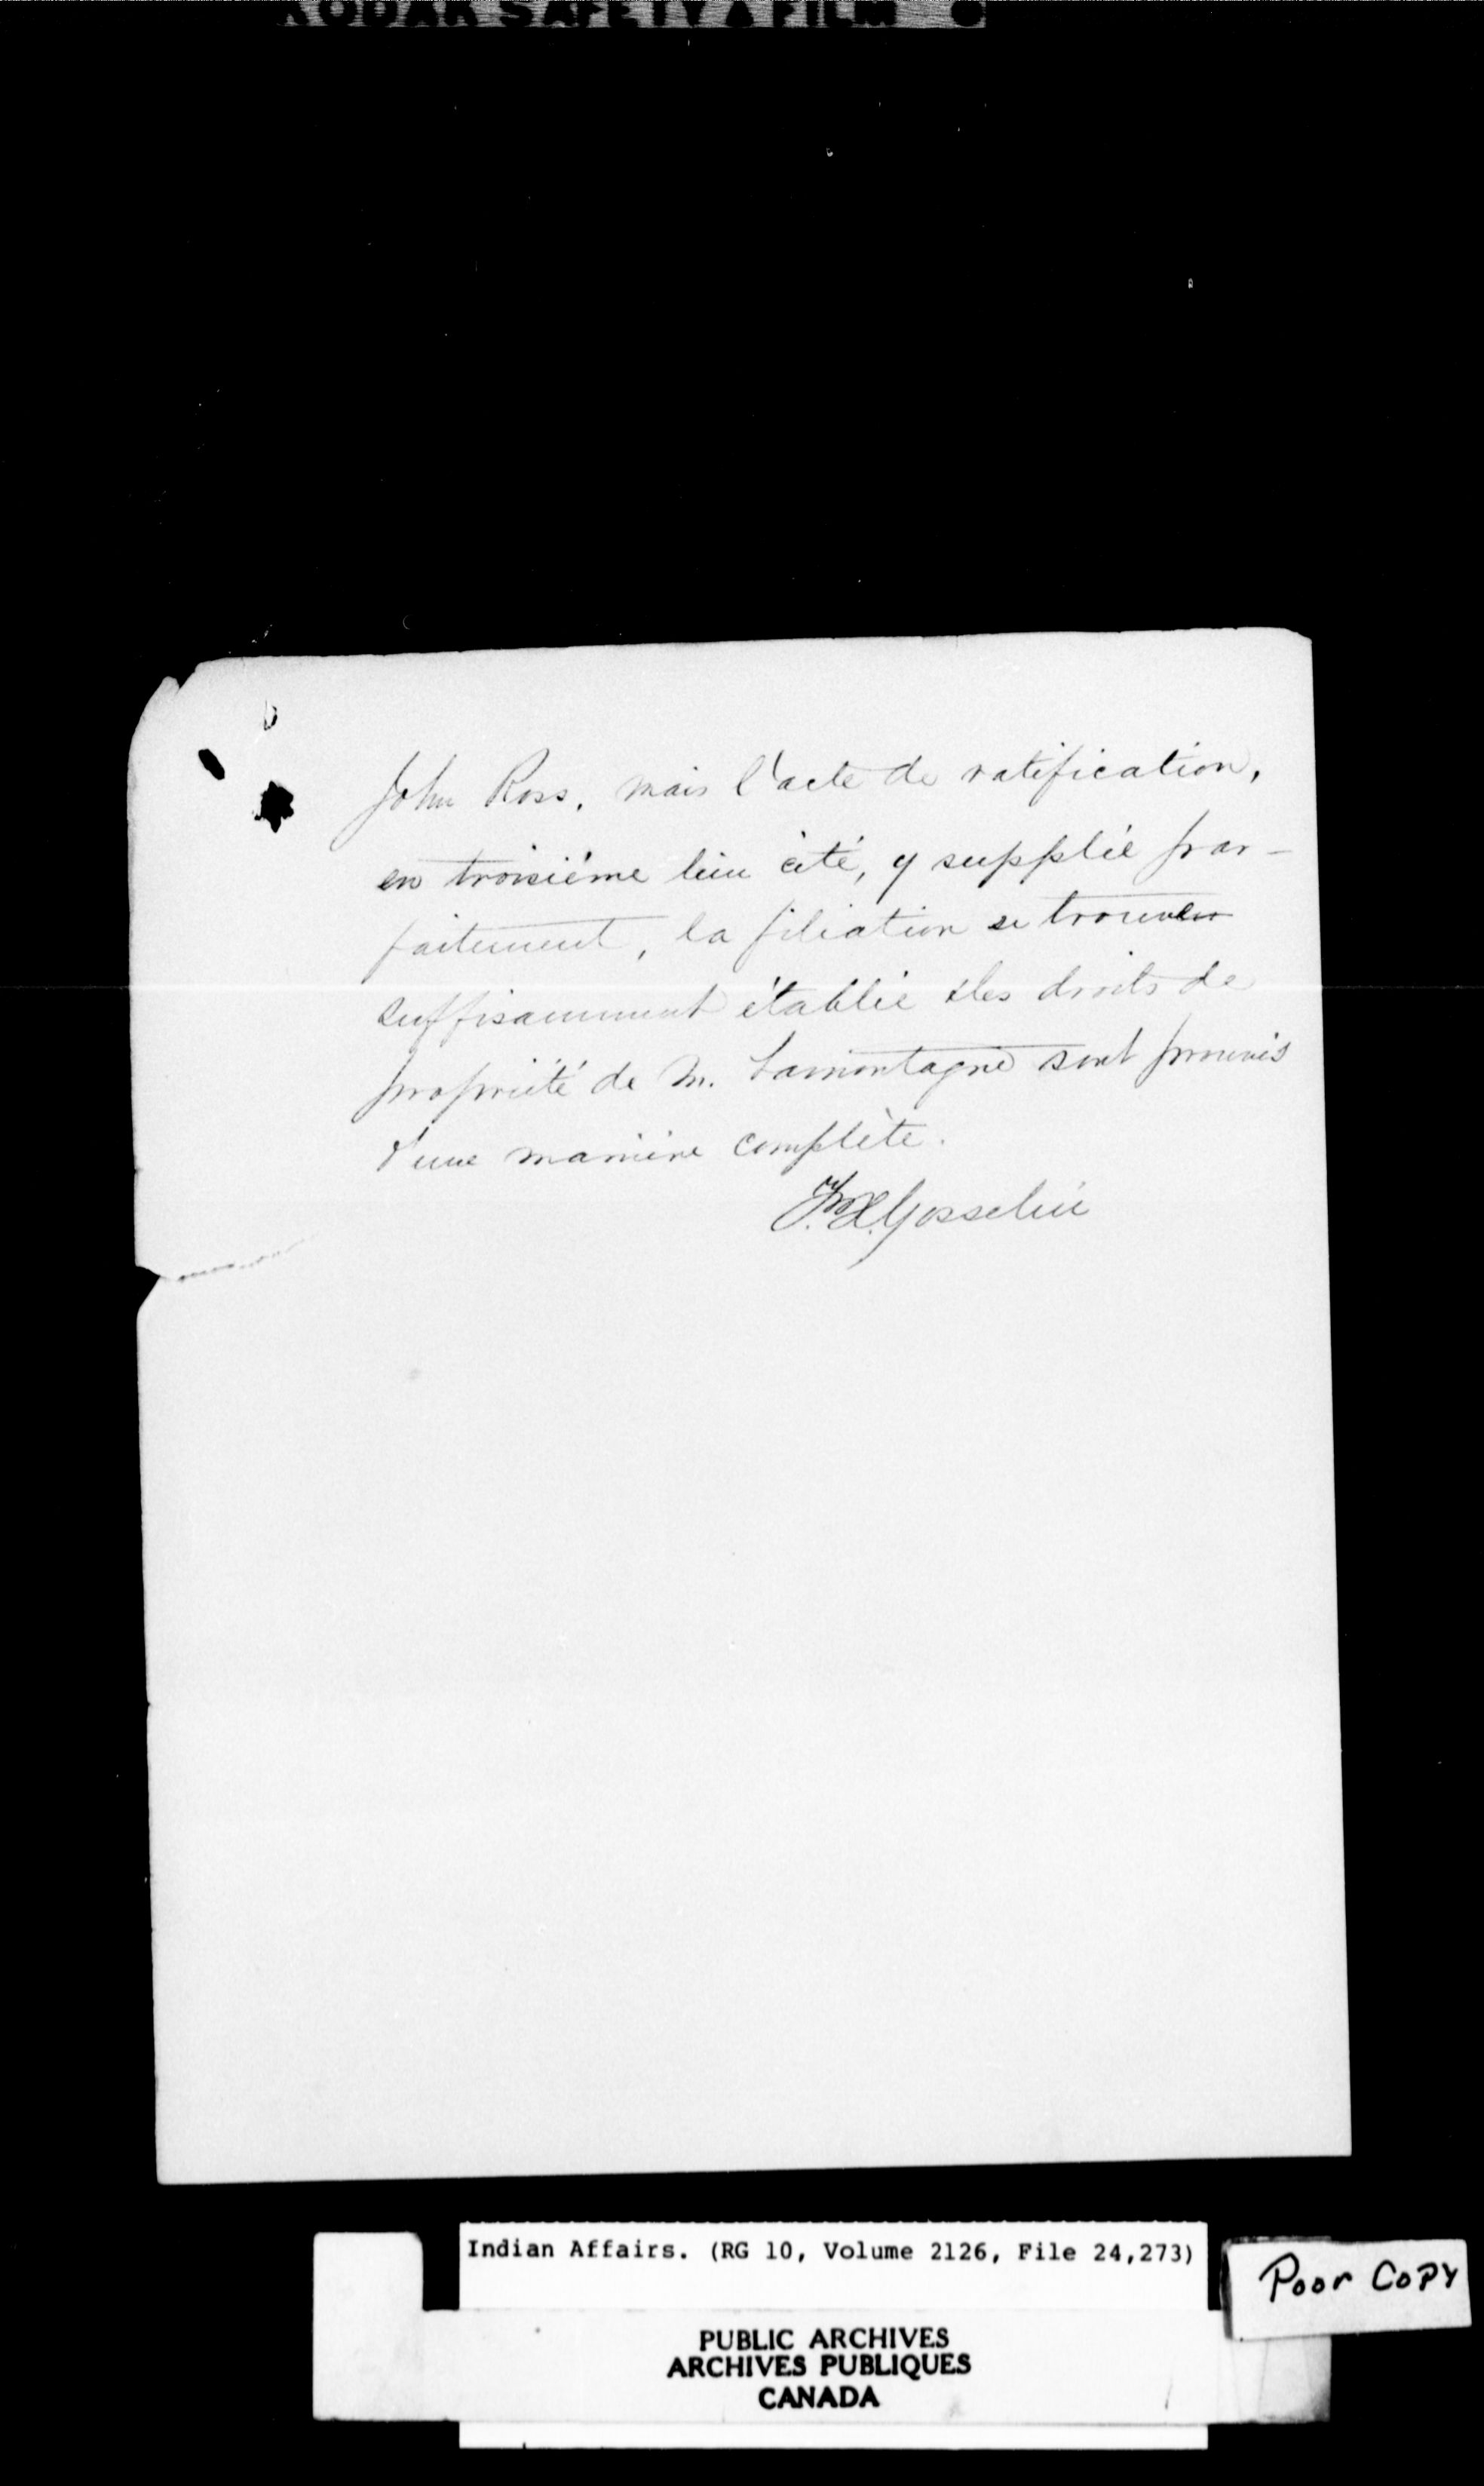 KODAK SAFETY ▲ FILM ●
6
John Ross, mais l'acte de ratification,
en troisième lieu cité, y supplée par-
faitement, la filiation se trouve
suffisamment établie & les droits de
propriété de M. Lamontagne sont prouvés
d'une manière complète.
F. X. Gosselin
Indian Affairs. (RG 10, Volume 2126, File 24,273)
Poor Copy
PUBLIC ARCHIVES
ARCHIVES PUBLIQUES
CANADA